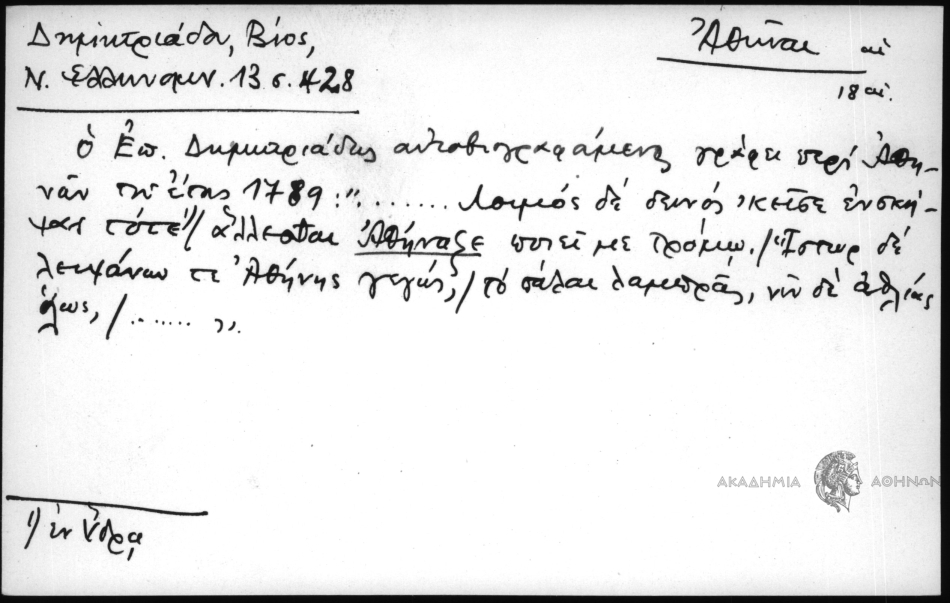 Δημητριάδη, Βίος,
Ν. Ελληνομν. 13 σ. 428
Ἀθῆναι αἱ
18 αἰ.
ὁ Ἐπ. Δημητριάδης αὐτοβιογραφούμενος γράφει περὶ Ἀθη-
νῶν τοῦ ἔτους 1789: "........ Λοιμός δέ δεινός 'κεῖσε ἐνσκή-
ψας τότε 1)/ ἅλλεσθαι Ἀθήναζε ποιεῖ με τρόμῳ. / Ἵστωρ δέ
λειψάνων τε Ἀθήνης γεγώς, / τό πάλαι λαμπρᾶς, νῦν δέ ἀθλίας
ὅλως, / ....... ".
ΑΚΑΔΗΜΙΑ ΑΘΗΝΩΝ
1) ἐν Ὕδρᾳ